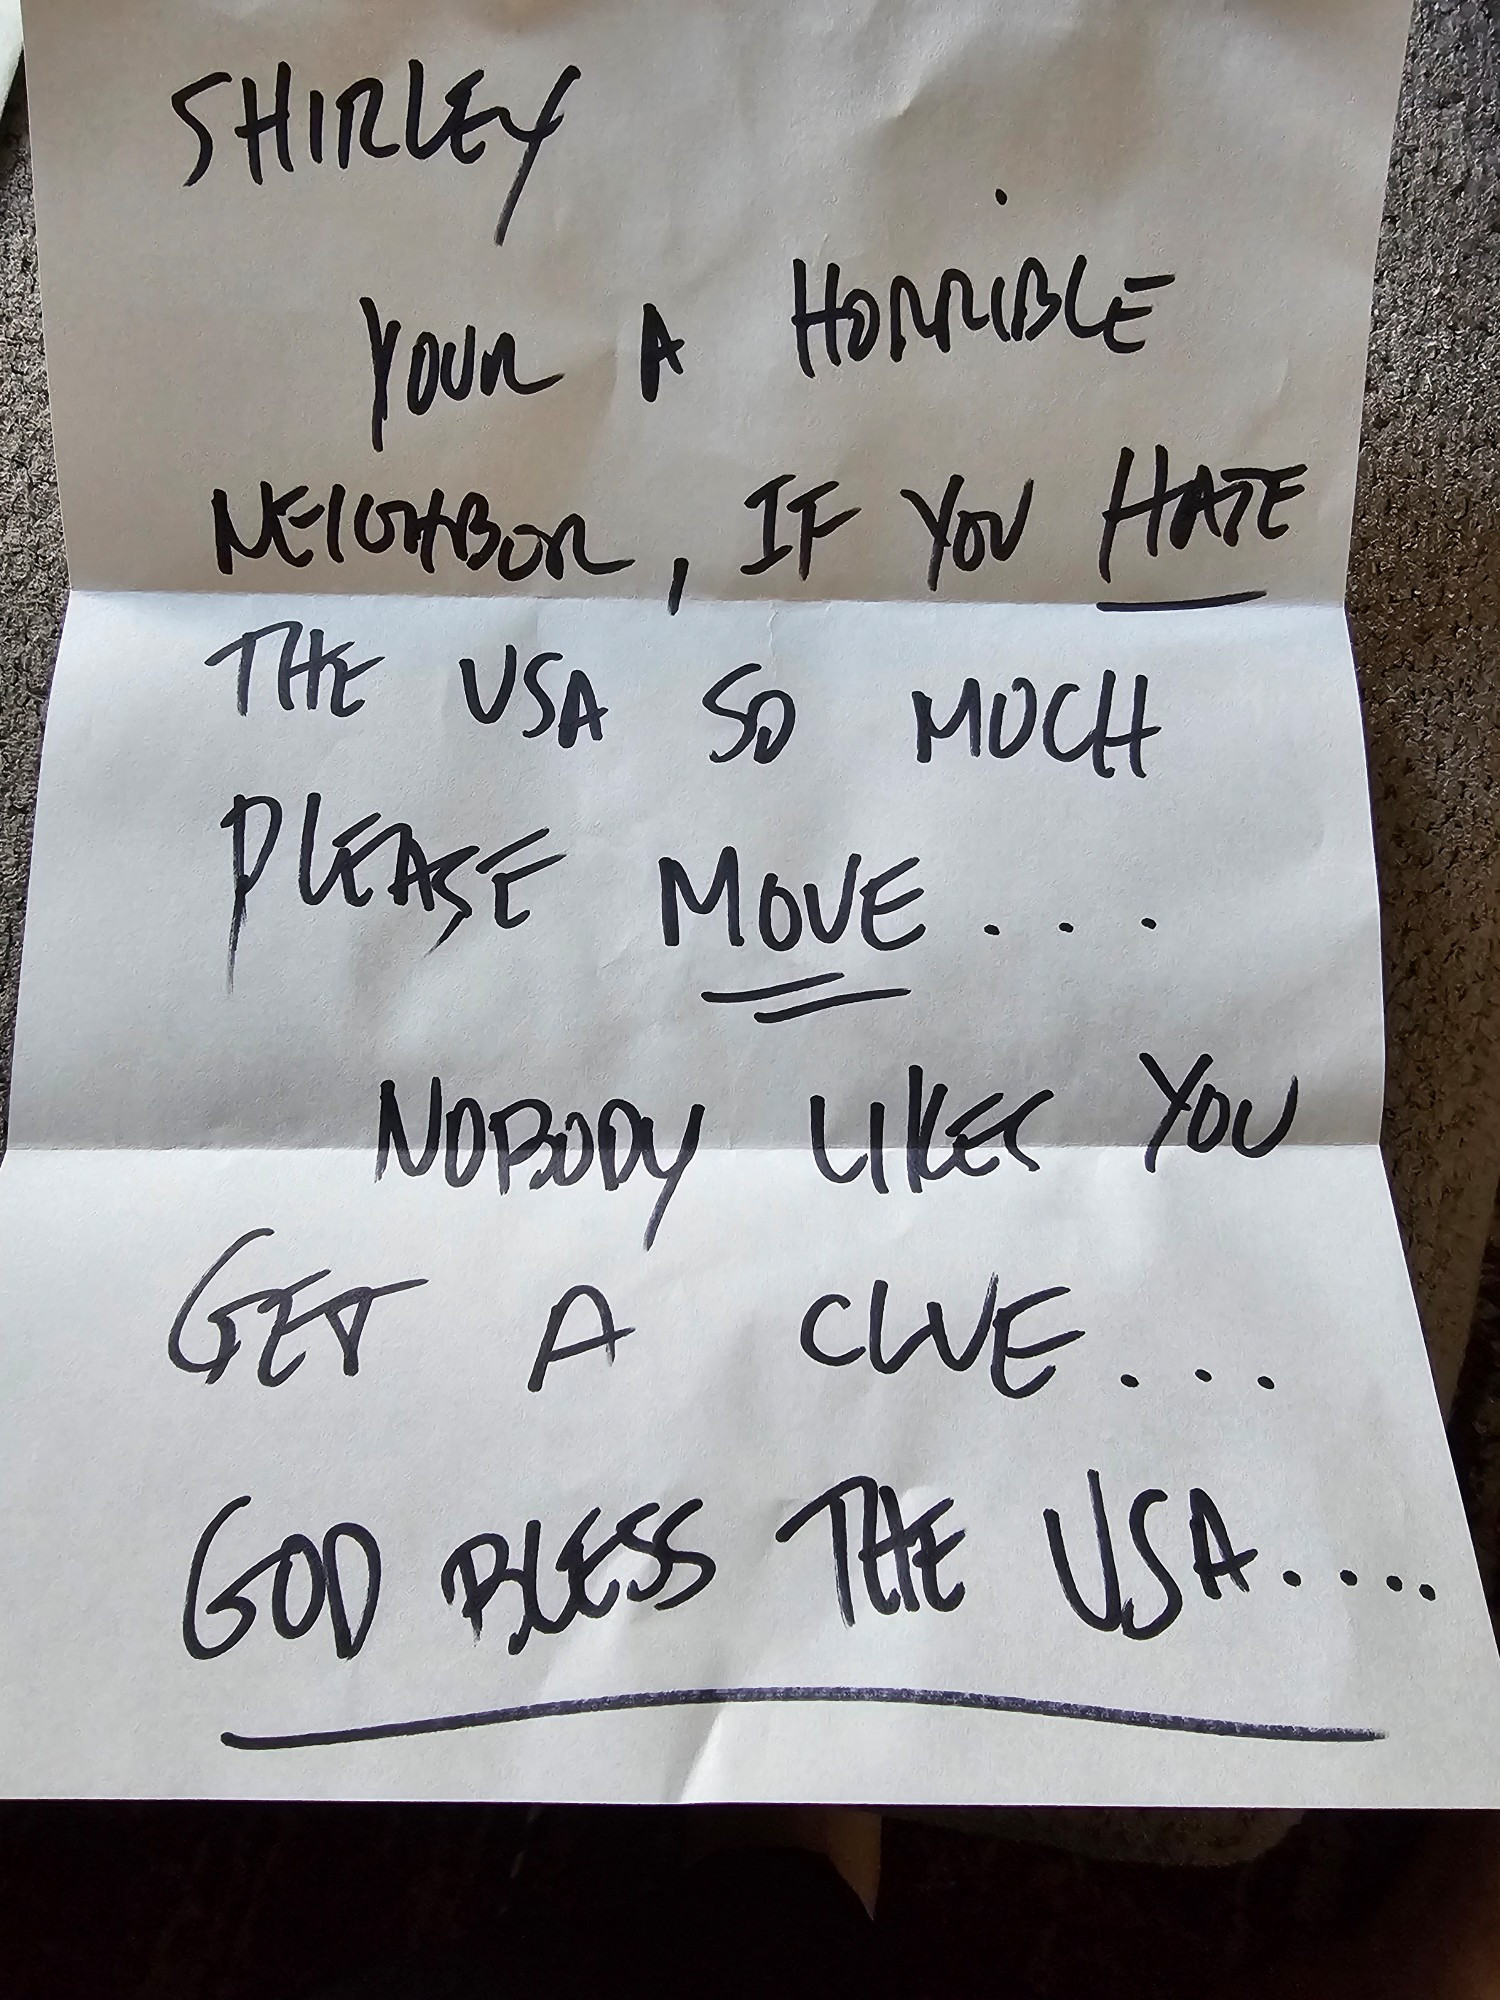 SHIRLEY
YOUR A HORRIBLE
NEIGHBOR, IF YOU HATE
THE USA SO MUCH
PLEASE MOVE....
NOBODY LIKES YOU
GET A CLUE....
GOD BLESS THE USA....